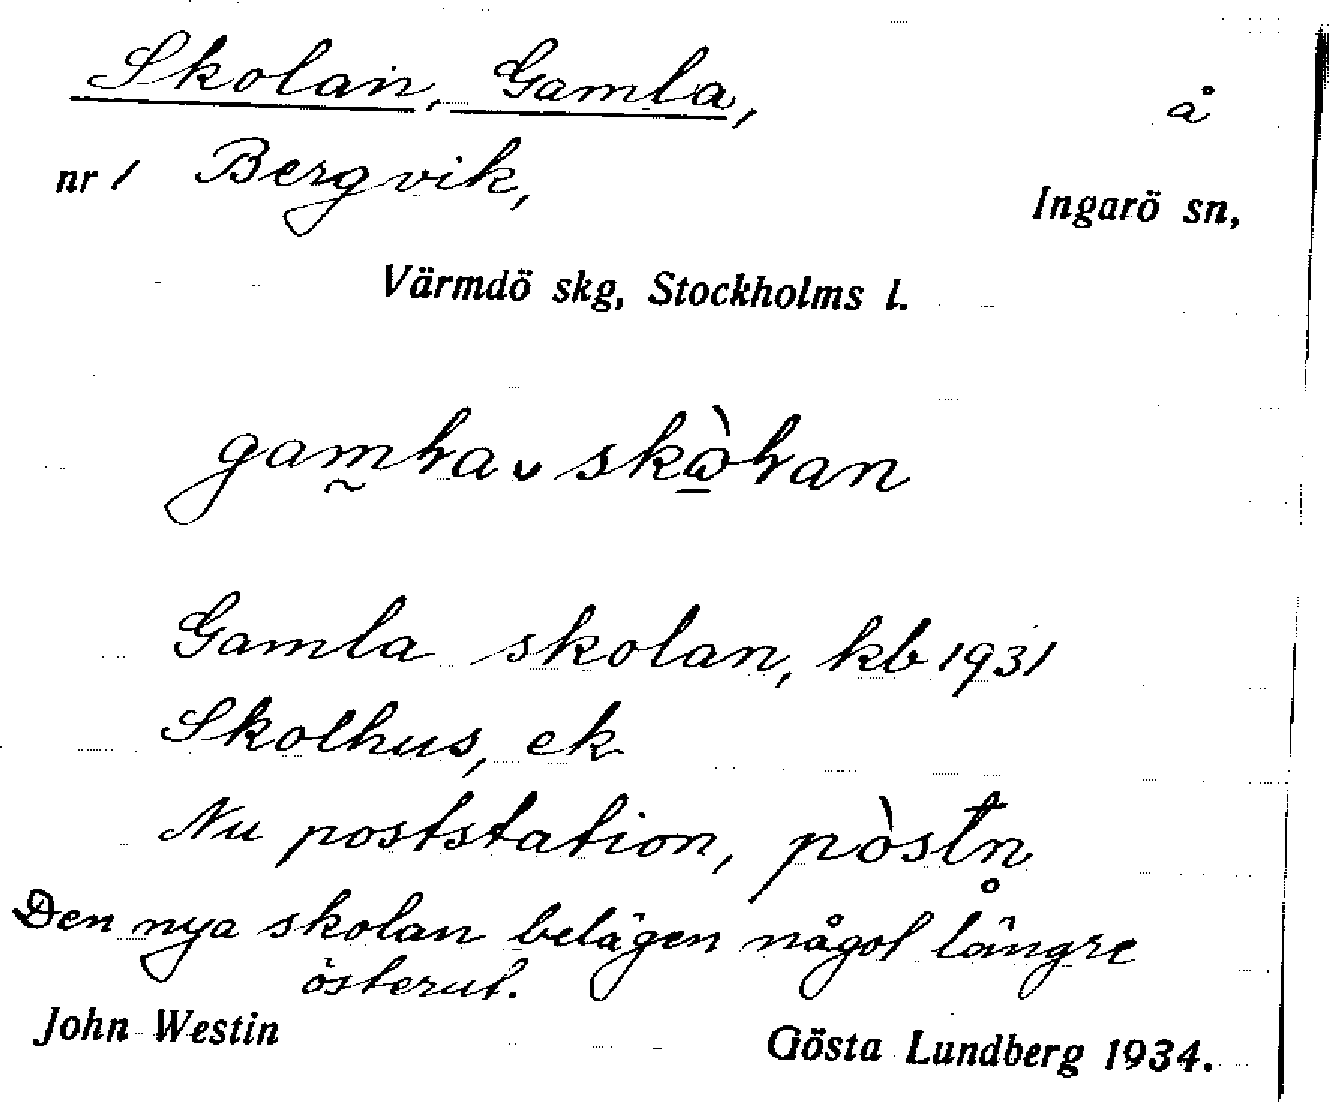 Skolan, Gamla,
å
nr 1 Bergvik,
Ingarö sn,
Värmdö skg, Stockholms l.
Gamla skolan, kb 1931
Skolhus, ek
Nu poststation,
Den nya skolan belägen något längre
österut.
John Westin
Gösta Lundberg 1934.